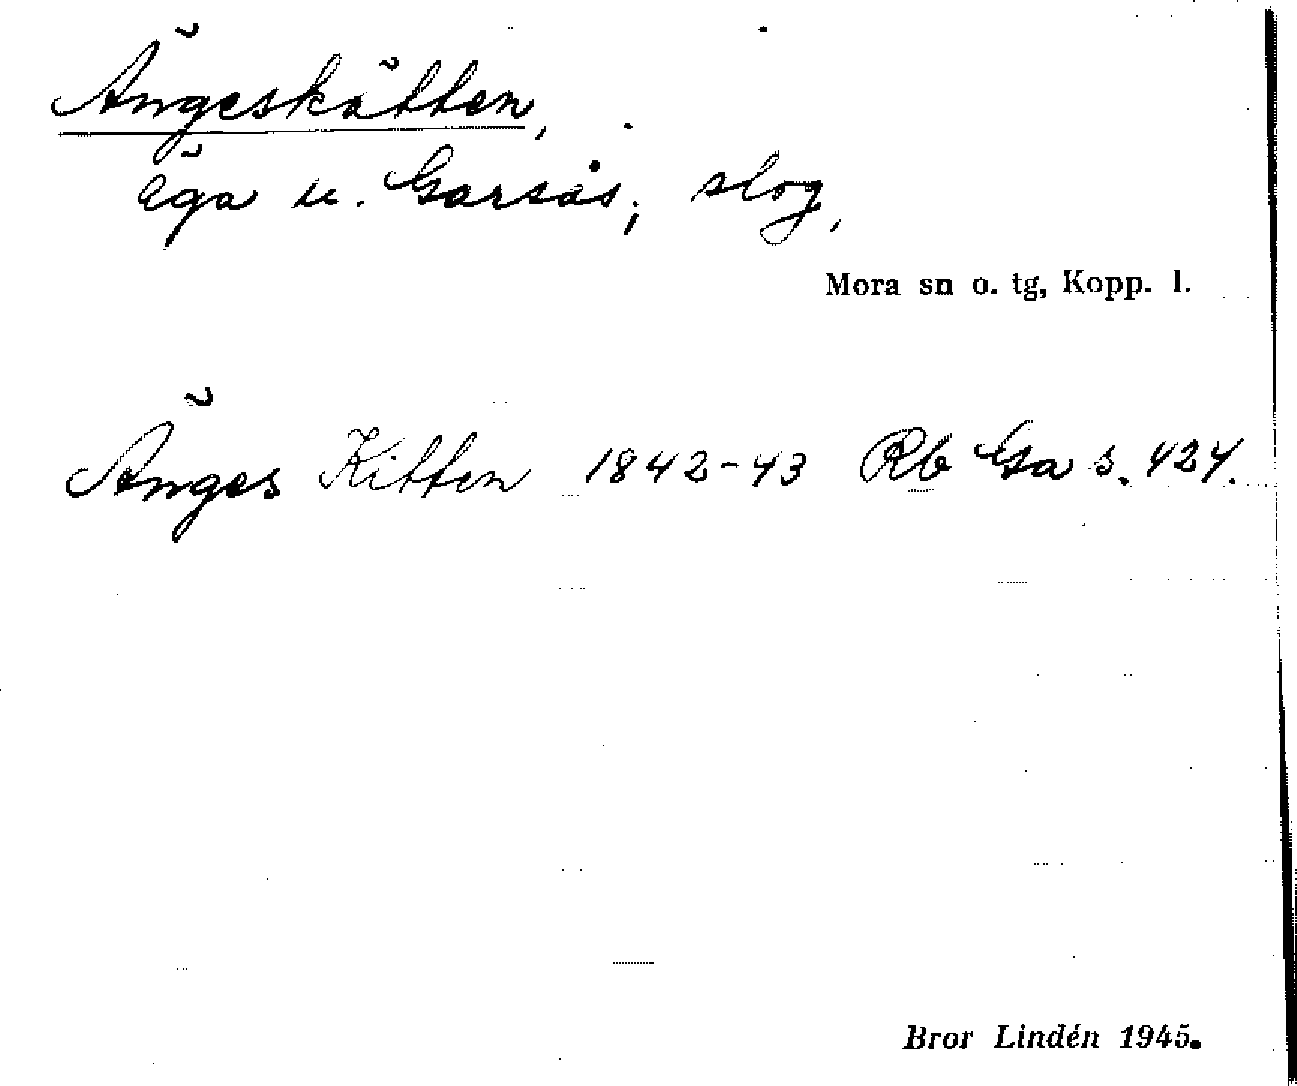 Ängeskätten,
äga u. Garsås; slog,
Mora sn o. tg, Kopp. l.
Änges Kitten 1842-43 Rb Ga s. 424.
Bror Lindén 1945.